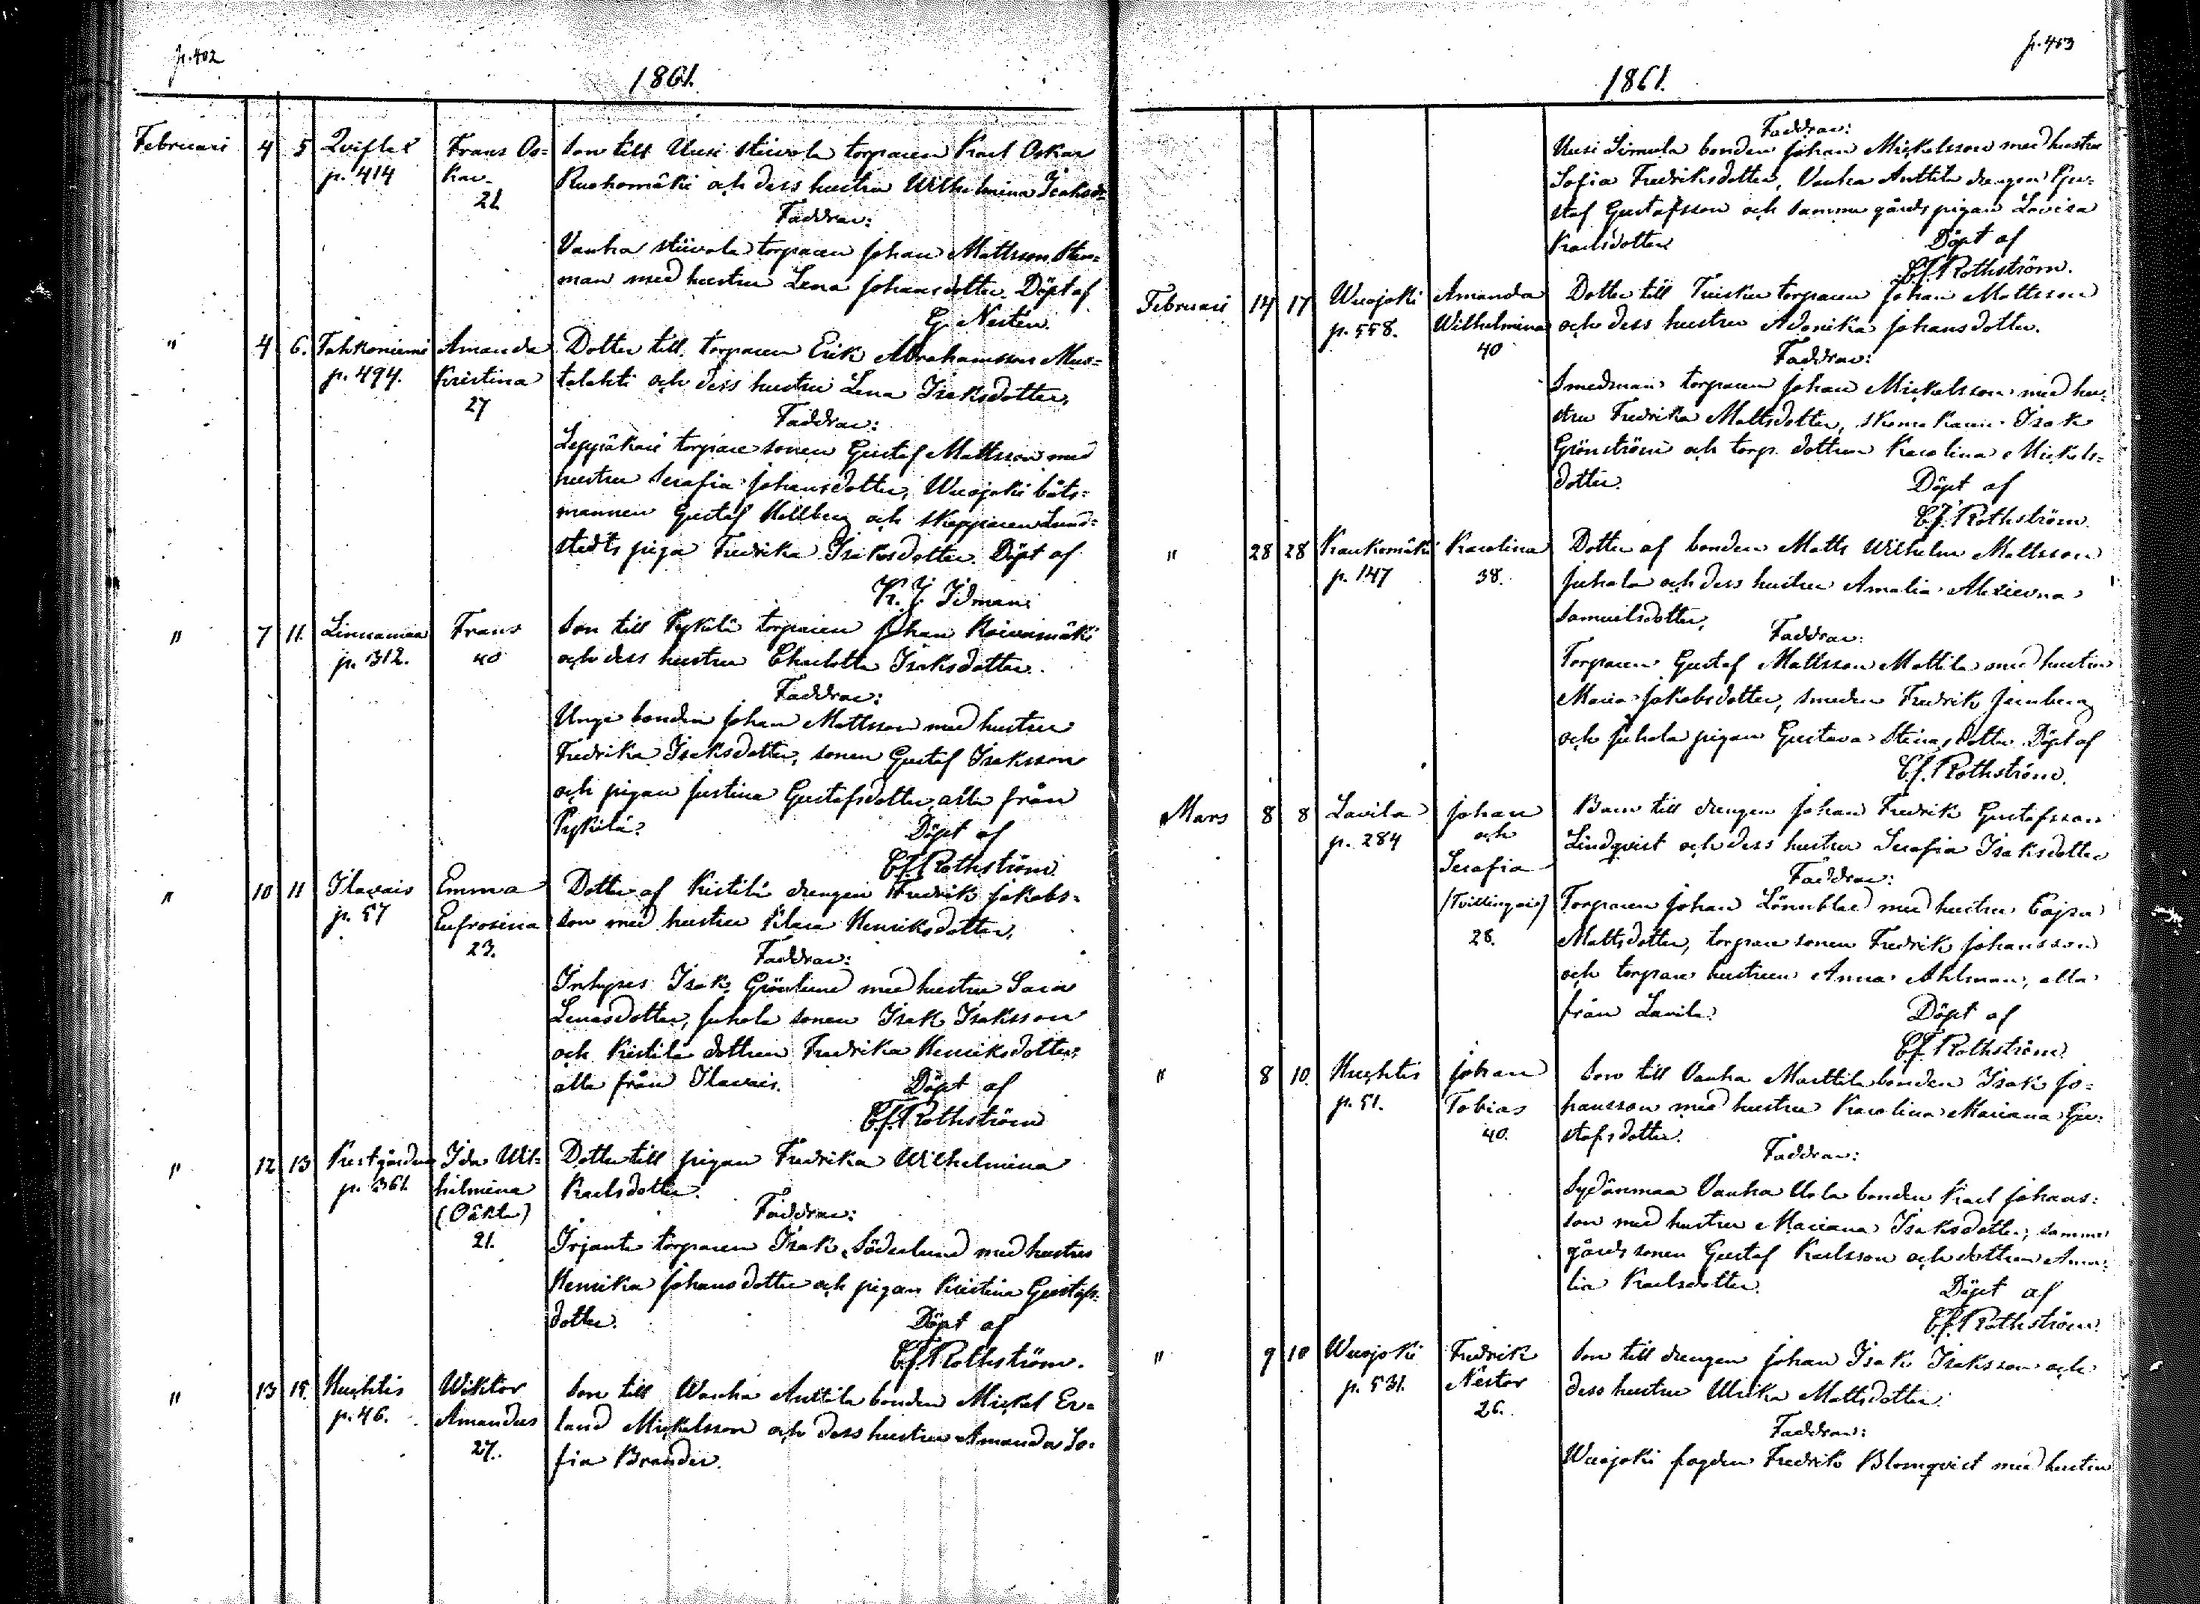 p. 402
1861.
Februari 4 5 Qviflax Frans Os= Son till Uusi Stiivola torparen Karl Oskar
p. 414 kar Ruohomäki och dess hustru Wilhelmina Isaksd:
21. Faddrar:
Vanha Stiivola torparen Johan Mattsson Sten=
man med hustru Lena Johansdotter. Döpt af
G. Nestén.
" 4 6. Tahkoniemi Amanda Dotter till torparen Erik Abrahamsson Mus=
p. 494. Kristina talahti och dess hustru Lena Isaksdotter,
27 Faddrar:
Leppäkari torparesonen Gustaf Mattsson med
hustru Serafia Johansdotter, Wuojoki båts=
mannen Gustaf Hellberg och skepparen Lund=
stedts piga Fredrika Isaksdotter. Döpt af
K. J. Idman.
" 7 11. Linnamaa Frans Son till Pykülä torparen Johan Koivumäki
p. 312. 40 och dess hustru Charlotta Isaksdotter.
Faddrar:
Unge bonden Johan Mattsson med hustru
Fredrika Isaksdotter, sonen Gustaf Isaksson
och pigan Justina Gustafsdotter alla från
Pykülä. Döpt af
C.J. Rothström.
" 10 11 Ilavais Emma Dotter af Kistilä drengen Fredrik Jakobs=
p. 57 Eufrosina son med hustru Klara Henriksdotter,
23. Faddrar:
Inhyses Isak Grönlund med hustru Sara
Lenasdotter, Juhola sonen Isak Isaksson
och Kistilä dottren Fredrika Henriksdotter,
alla från Ilavais. Döpt af
C.J. Rothström
" 12 13 Prestgården Ida Wil= Dotter till pigan Fredrika Wilhelmina
p. 361. helmina Karlsdotter.
(Oäkta) Faddrar:
21. Irjanta torparen Isak Söderlund med hustru
Henrika Johansdotter och pigan Kristina Gustafs=
dotter. Döpt af
C.J. Rothström.
" 13 15. Huhtis Wiktor Son till Wanha Anttila bonden Mickel Er=
p. 46. Amandus land Mickelsson och dess hustru Amanda So=
27. fia Brander.
p. 403
1861.
Faddrar:
Uusi Sirnula bonden Johan Mickelsson med hustru
Sofia Fredriksdotter, Vanha Anttila drengen Gu=
staf Gustafsson och samma gårds pigan Lovisa
Karlsdotter Döpt af
C.J. Rothström.
Februari 14 17 Wuojoki Amanda Dotter till Tuiskun torparen Johan Mattsson
p. 558. Wilhelmina och dess hustru Adonika Johansdotter.
40 Faddrar:
Smedman torparen Johan Mickelsson med hu=
stru Fredrika Mattsdotter, skomakaren Isak
Grönström och torp. dottren Karolina Mickels=
dotter. Döpt af
C.J. Rothström.
" 28 28 Kaukomäki Karolina Dotter af bonden Matts Wilhelm Mattsson
p. 147 38. Juhala och dess hustru Amalia Alexievna
Samuelsdotter,
Faddrar:
Torparen Gustaf Mattsson Mattila med hustru
Maria Jakobsdotter, smeden Fredrik Jernberg
och Juhala pigan Gustava Stinasdotter Döpt af
C.J. Rothström.
Mars 8 8 Lavila Johan Barn till drengen Johan Fredrik Gustafsson
p. 284 och Lindqvist och dess hustru Serafia Isaksdotter
Serafia Faddrar:
(Tvillingar) Torparen Johan Lönnblad med hustru Cajsa
28. Mattsdotter, torparesonen Fredrik Johansson
och torpare hustrun Anna Ahlman, alla
från Lavila. Döpt af
C.J. Rothström.
" 8 10. Huhtis Johan Son till Vanha Marttila bonden Isak Jo=
p. 51. Tobias hansson med hustru Karolina Mariana Gu=
40. stafsdotter.
Faddrar:
Sydänmaa Vanha Uola bonden Karl Johans=
son med hustru Mariana Isaksdotter, samma
gårds sonen Gustaf Karlsson och dottren Ama=
lia Karlsdotter. Döpt af
C.J. Rothström.
" 9 10 Wuojoki Fredrik Son till drengen Johan Isak Isaksson och
p. 531. Nestor dess hustru Ulrika Mattsdotter.
26. Faddrar:
Wuojoki fogden Fredrik Blomqvist med hustru